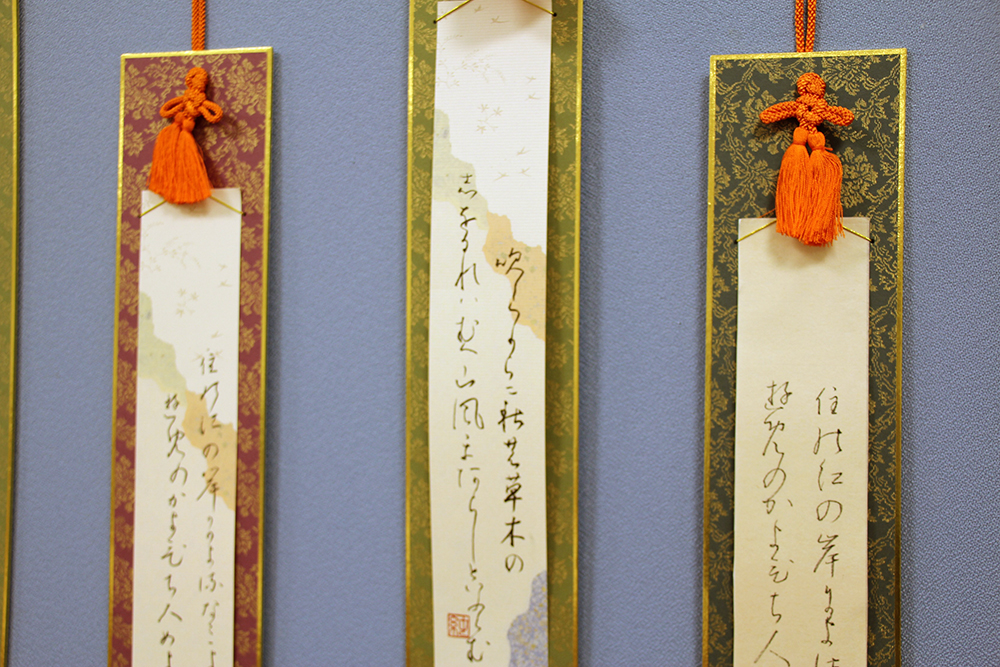 住の江の岸による
ゆめのかよひち人
吹くからに秋の草木の
しをるれはむへ山風をあらしといふらむ
住の江の岸による なみよ
ゆめのかよひち人めよ